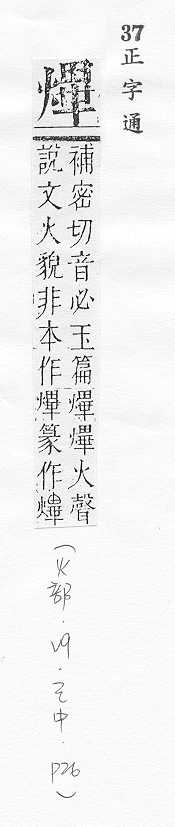 37 正字通
熚
補密切音必玉篇熚熚火聲
說文火貌非本作熚篆作
(火部.巳中.P26)